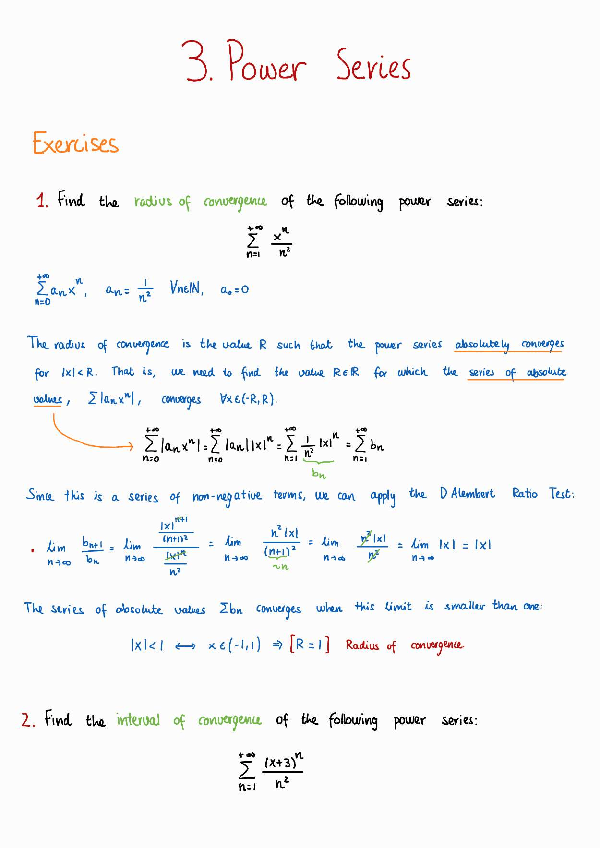 3. Power Series
Exercises
1. Find the radius of convergence of the following power series:
+∞ ∑ n=1 xⁿ/n²
+∞ ∑ n=0 aₙxⁿ, aₙ = 1/n² ∀n∈ℕ, a₀=0
The radius of convergence is the value R such that the power series absolutely converges
for |x|<R. That is, we need to find the value R∈ℝ for which the series of absolute
values, ∑|aₙxⁿ|, converges ∀x∈(-R,R).
+∞ ∑ n=0 |aₙxⁿ| = +∞ ∑ n=0 |aₙ||x|ⁿ = +∞ ∑ n=1 1/n² |x|ⁿ = +∞ ∑ n=1 bₙ
bₙ
Since this is a series of non-negative terms, we can apply the D'Alembert Ratio Test:
• lim n→∞ bₙ₊₁/bₙ = lim n→∞ (|x|ⁿ⁺¹/(n+1)²)/(|x|ⁿ/n²) = lim n→∞ n²|x|/(n+1)² = lim n→∞ n²|x|/n² = lim n→∞ |x| = |x|
~n
The series of absolute values ∑bₙ converges when this limit is smaller than one:
|x|<1 ⟷ x∈(-1,1) ⇒ [R=1] Radius of convergence
2. Find the interval of convergence of the following power series:
+∞ ∑ n=1 (x+3)ⁿ/n²